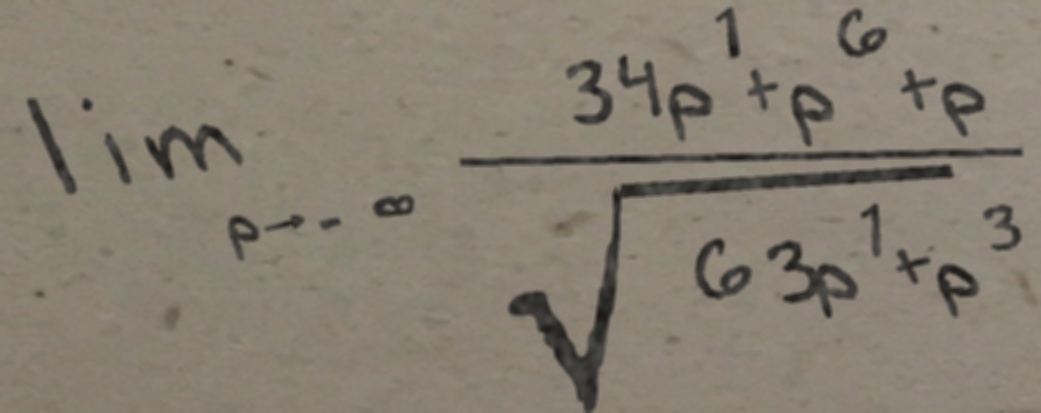 \lim_{p \to -\infty} \frac{34p^1 + p^6 + p}{\sqrt{63p^1 + p^3}}